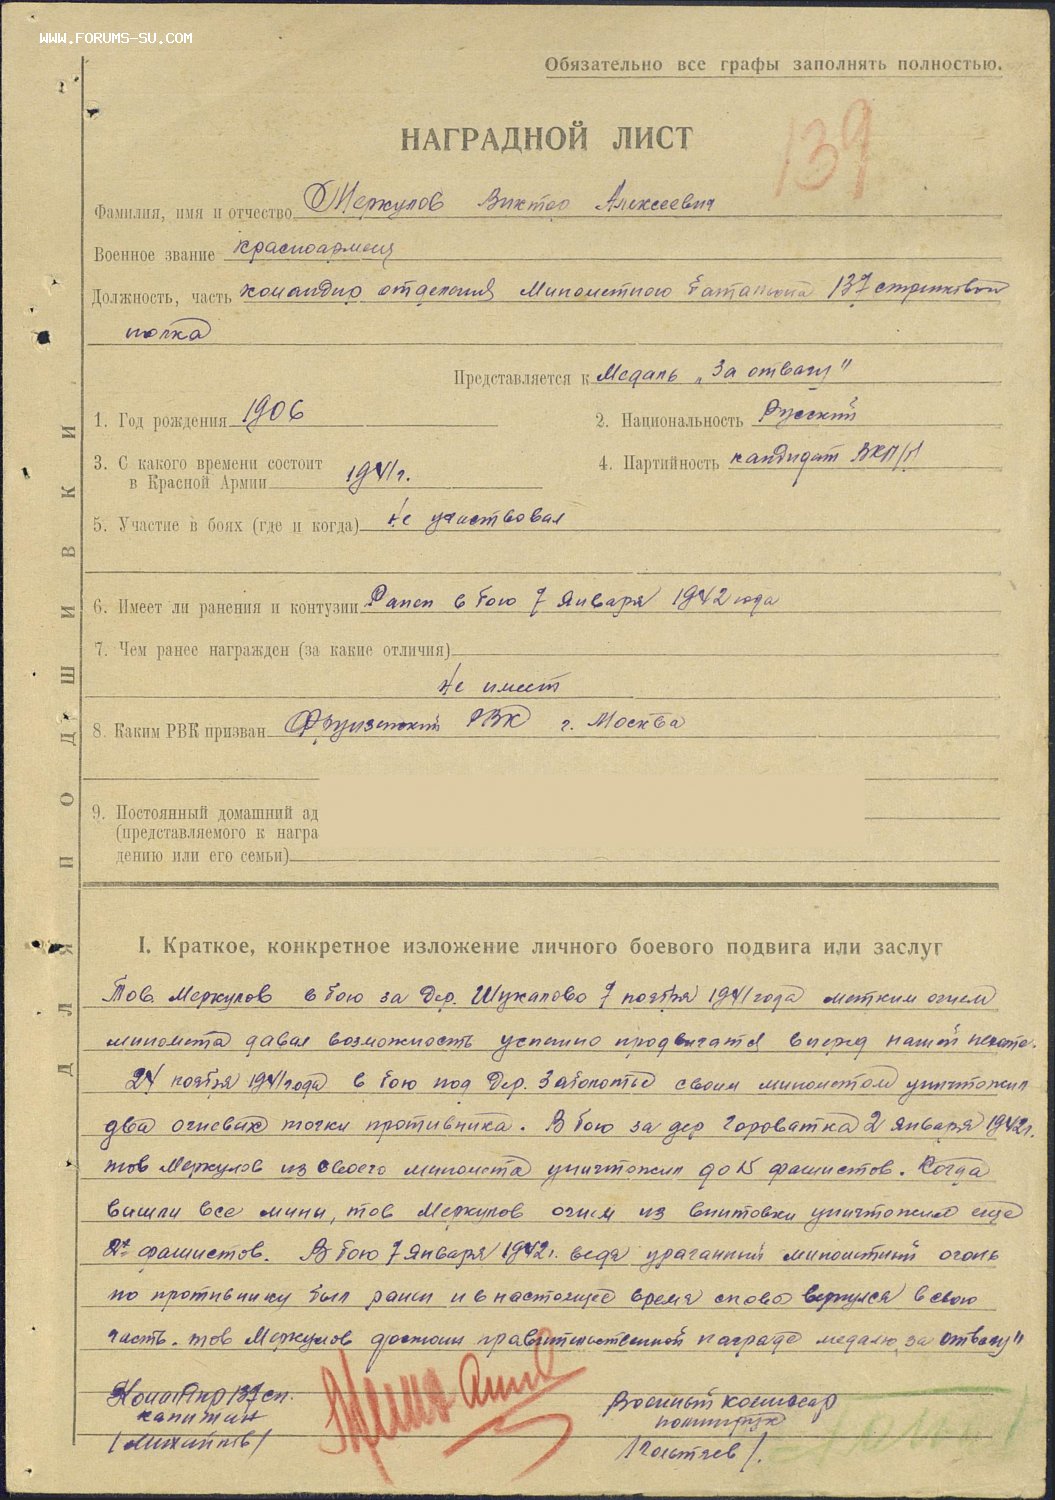 WWW.FORUMS-SU.COM
Обязательно все графы заполнять полностью.
139
НАГРАДНОЙ ЛИСТ
Фамилия, имя и отчество Меркулов Виктор Алексеевич
Военное звание красноармеец
Должность, часть командир отделения Минометного батальона 137 стрелковой
полка
Представляется к Медаль „За отвагу"
1. Год рождения 1906
2. Национальность Русский
3. С какого времени состоит
в Красной Армии 1941 г.
4. Партийность кандидат ВКП/б/
5. Участие в боях (где и когда) не участвовал
6. Имеет ли ранения и контузии Ранен в бою 7 Января 1942 года
7. Чем ранее награжден (за какие отличия)
Не имеет
8. Каким РВК призван Фрунзенский РВК г. Москва
9. Постоянный домашний ад
(представляемого к награ
дению или его семьи)
ДЛЯ ПОДШИВКИ
I. Краткое, конкретное изложение личного боевого подвига или заслуг
Тов. Меркулов в бою за Дер. Шукалово 7 ноября 1941 года метким огнем
миномета давал возможность успешно продвигатя вперед нашей пехоте.
24 ноября 1941 года в бою под Дер. Заболотье своим минометом уничтожил
два огневых точки противника. В бою за дер Гороватка 2 Января 1942 г.
тов Меркулов из своего миномета уничтожил до 15 фашистов. Когда
вышли все мины, тов Меркулов огнем из винтовки уничтожил еще
2х фашистов. В бою 7 Января 1942 г. ведя ураганный минометный огонь
по противнику был ранен и в настоящее время снова вернулся в свою
часть. тов Меркулов достоин правительственной награде медалю „за отвагу"
Командир 137 сп.
капитан
/Михайлов/
Военный комиссар
политрук